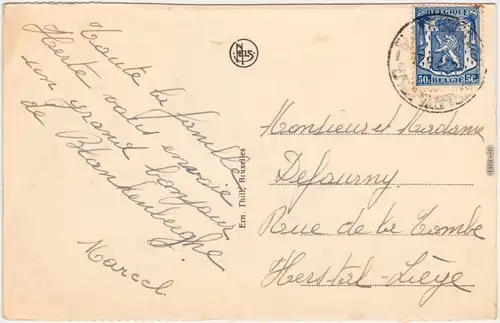 Toute la famille
Herte vous envoie
un grand bonjour
de Blankenberghe.
Marcel
NELS
Ern. Thill, Bruxelles
BELGIQUE
50c 50c
BELGIE
Monsieur et Madame
Defourny
Rue de la Tombe
Herstal-Liège